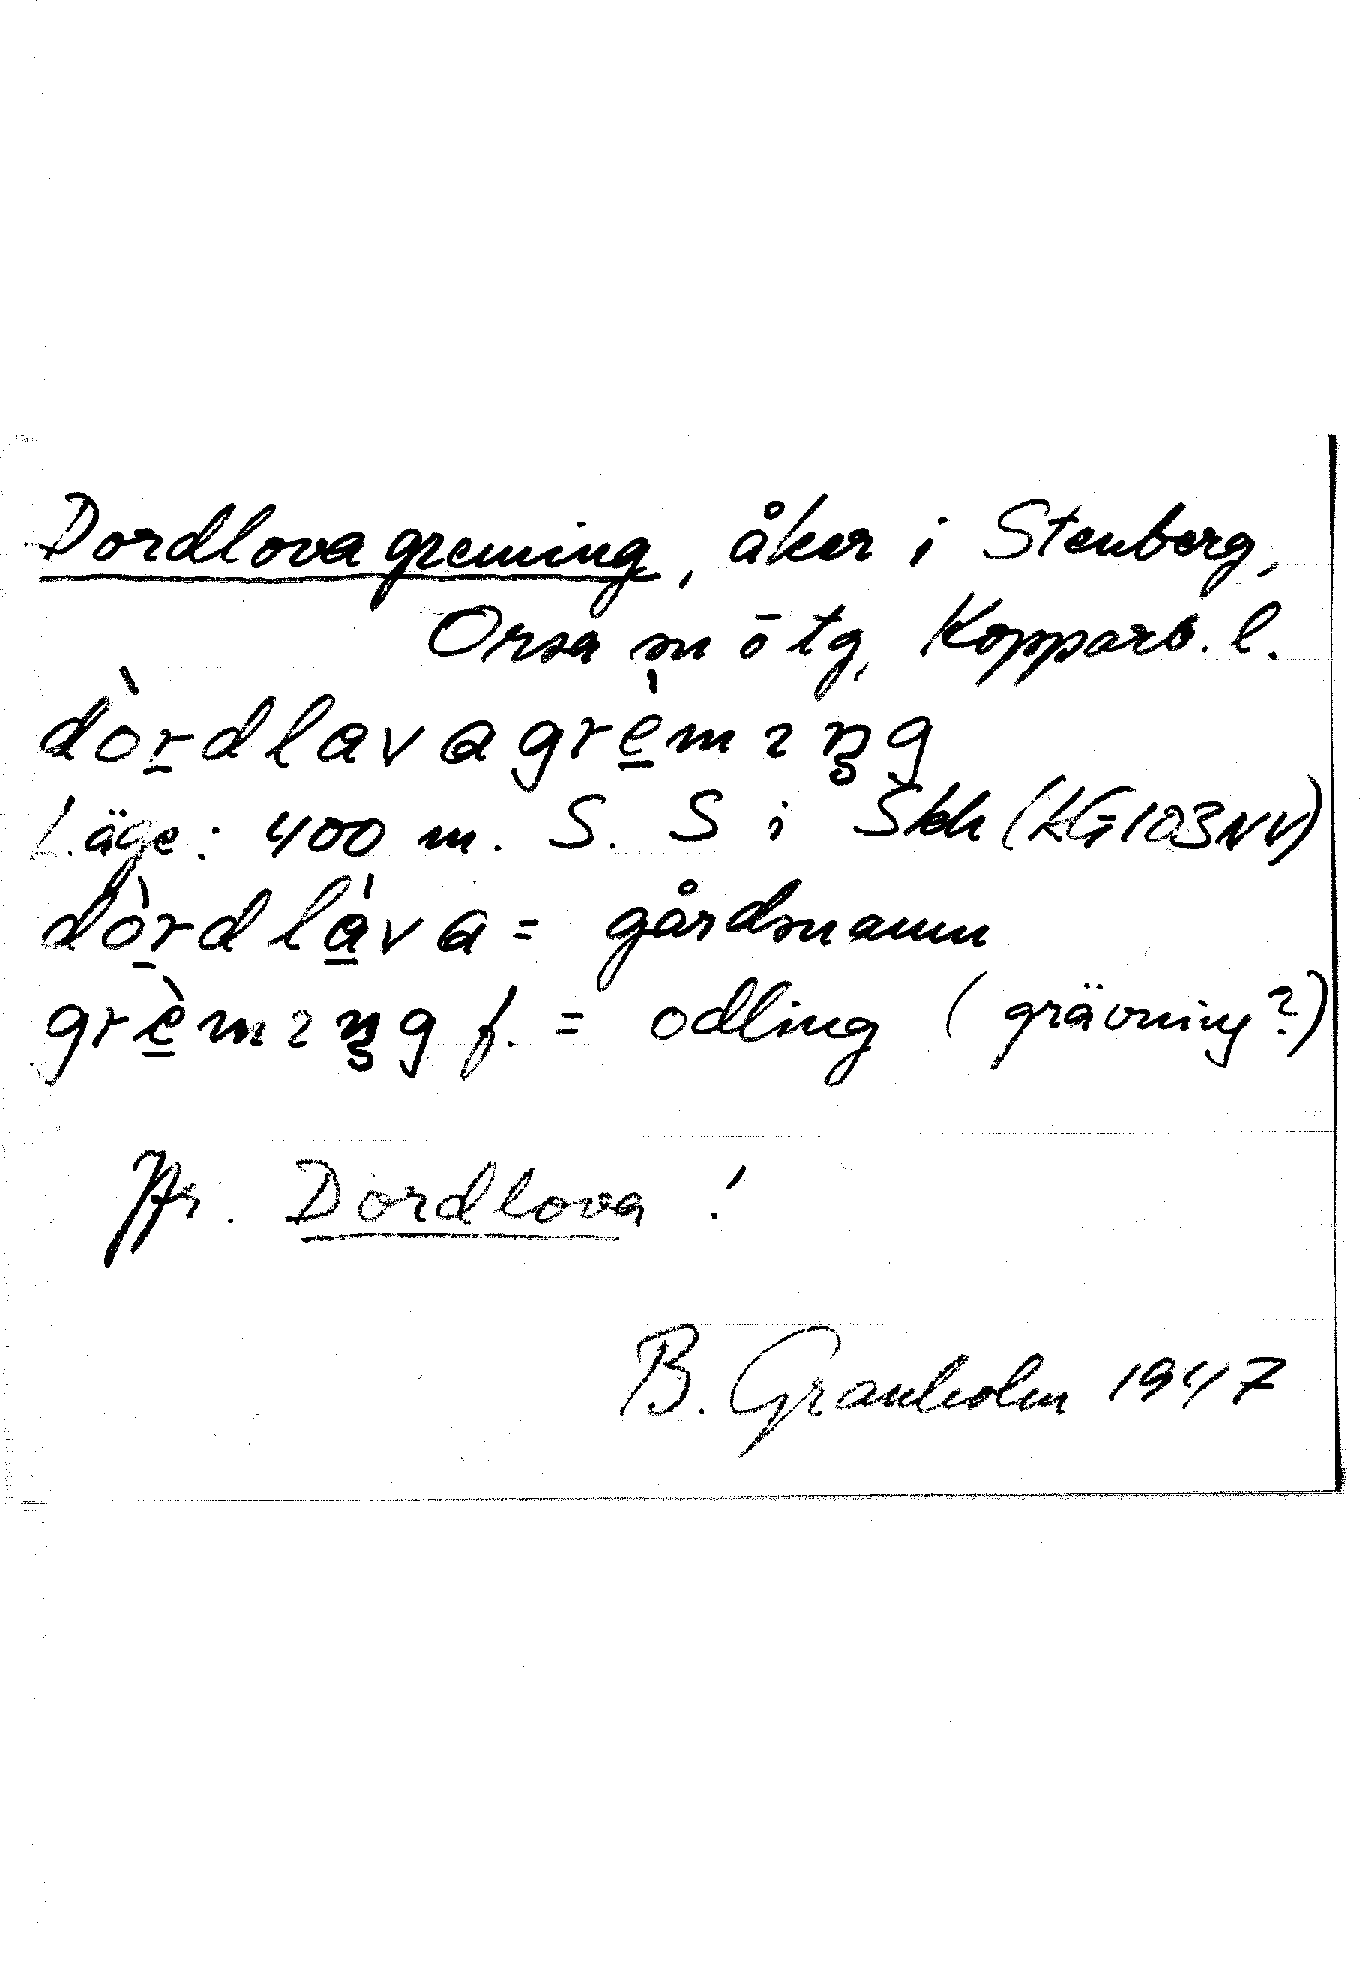 Dordlovagreming, åker i Stenberg,
Orsa sn ötg, Kopparb. l.
dòrdlavagrèmıŋg
Läge: 400 m. S. S i Skh (KG103NV)
dòrdlàva = gårdmann
grèmıŋg f. = odling (grävning?)
Jfr. Dordlova!
B. Granholm 1947